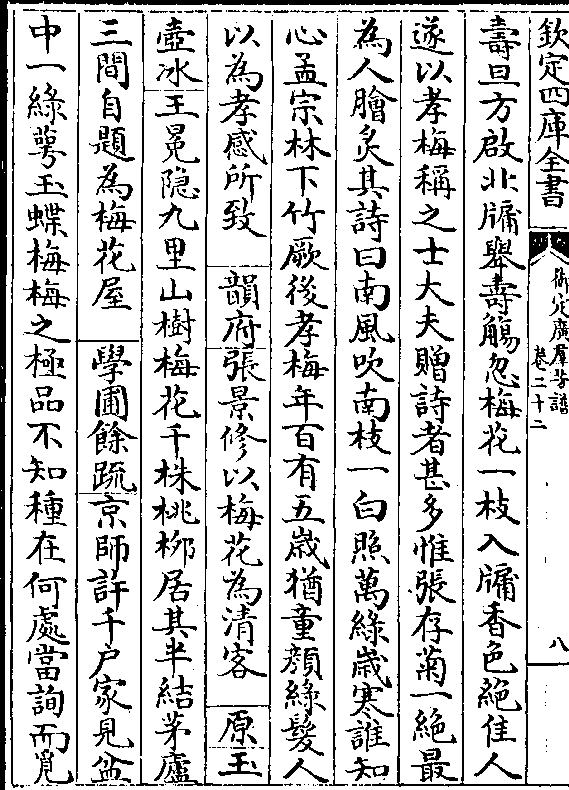 欽定四庫全書
御定廣羣芳譜
卷二十二
八
壽旦方啟北牖舉壽觴忽梅花一枝入牖香色絶佳人
遂以孝梅稱之士大夫贈詩者甚多惟張存菊一絶最
為人膾炙其詩曰南風吹南枝一白照萬綠歲寒誰知
心孟宗林下竹厥後孝梅年百有五歲猶童顔綠髮人
以為孝感所致 韻府張景修以梅花為清客 原玉
壺冰王冕隐九里山樹梅花千株桃栁居其半結茅廬
三間自題為梅花屋 學圃餘䟽京師許千户家見盆
中一綠萼玉蝶梅梅之極品不知種在何處當詢而覓